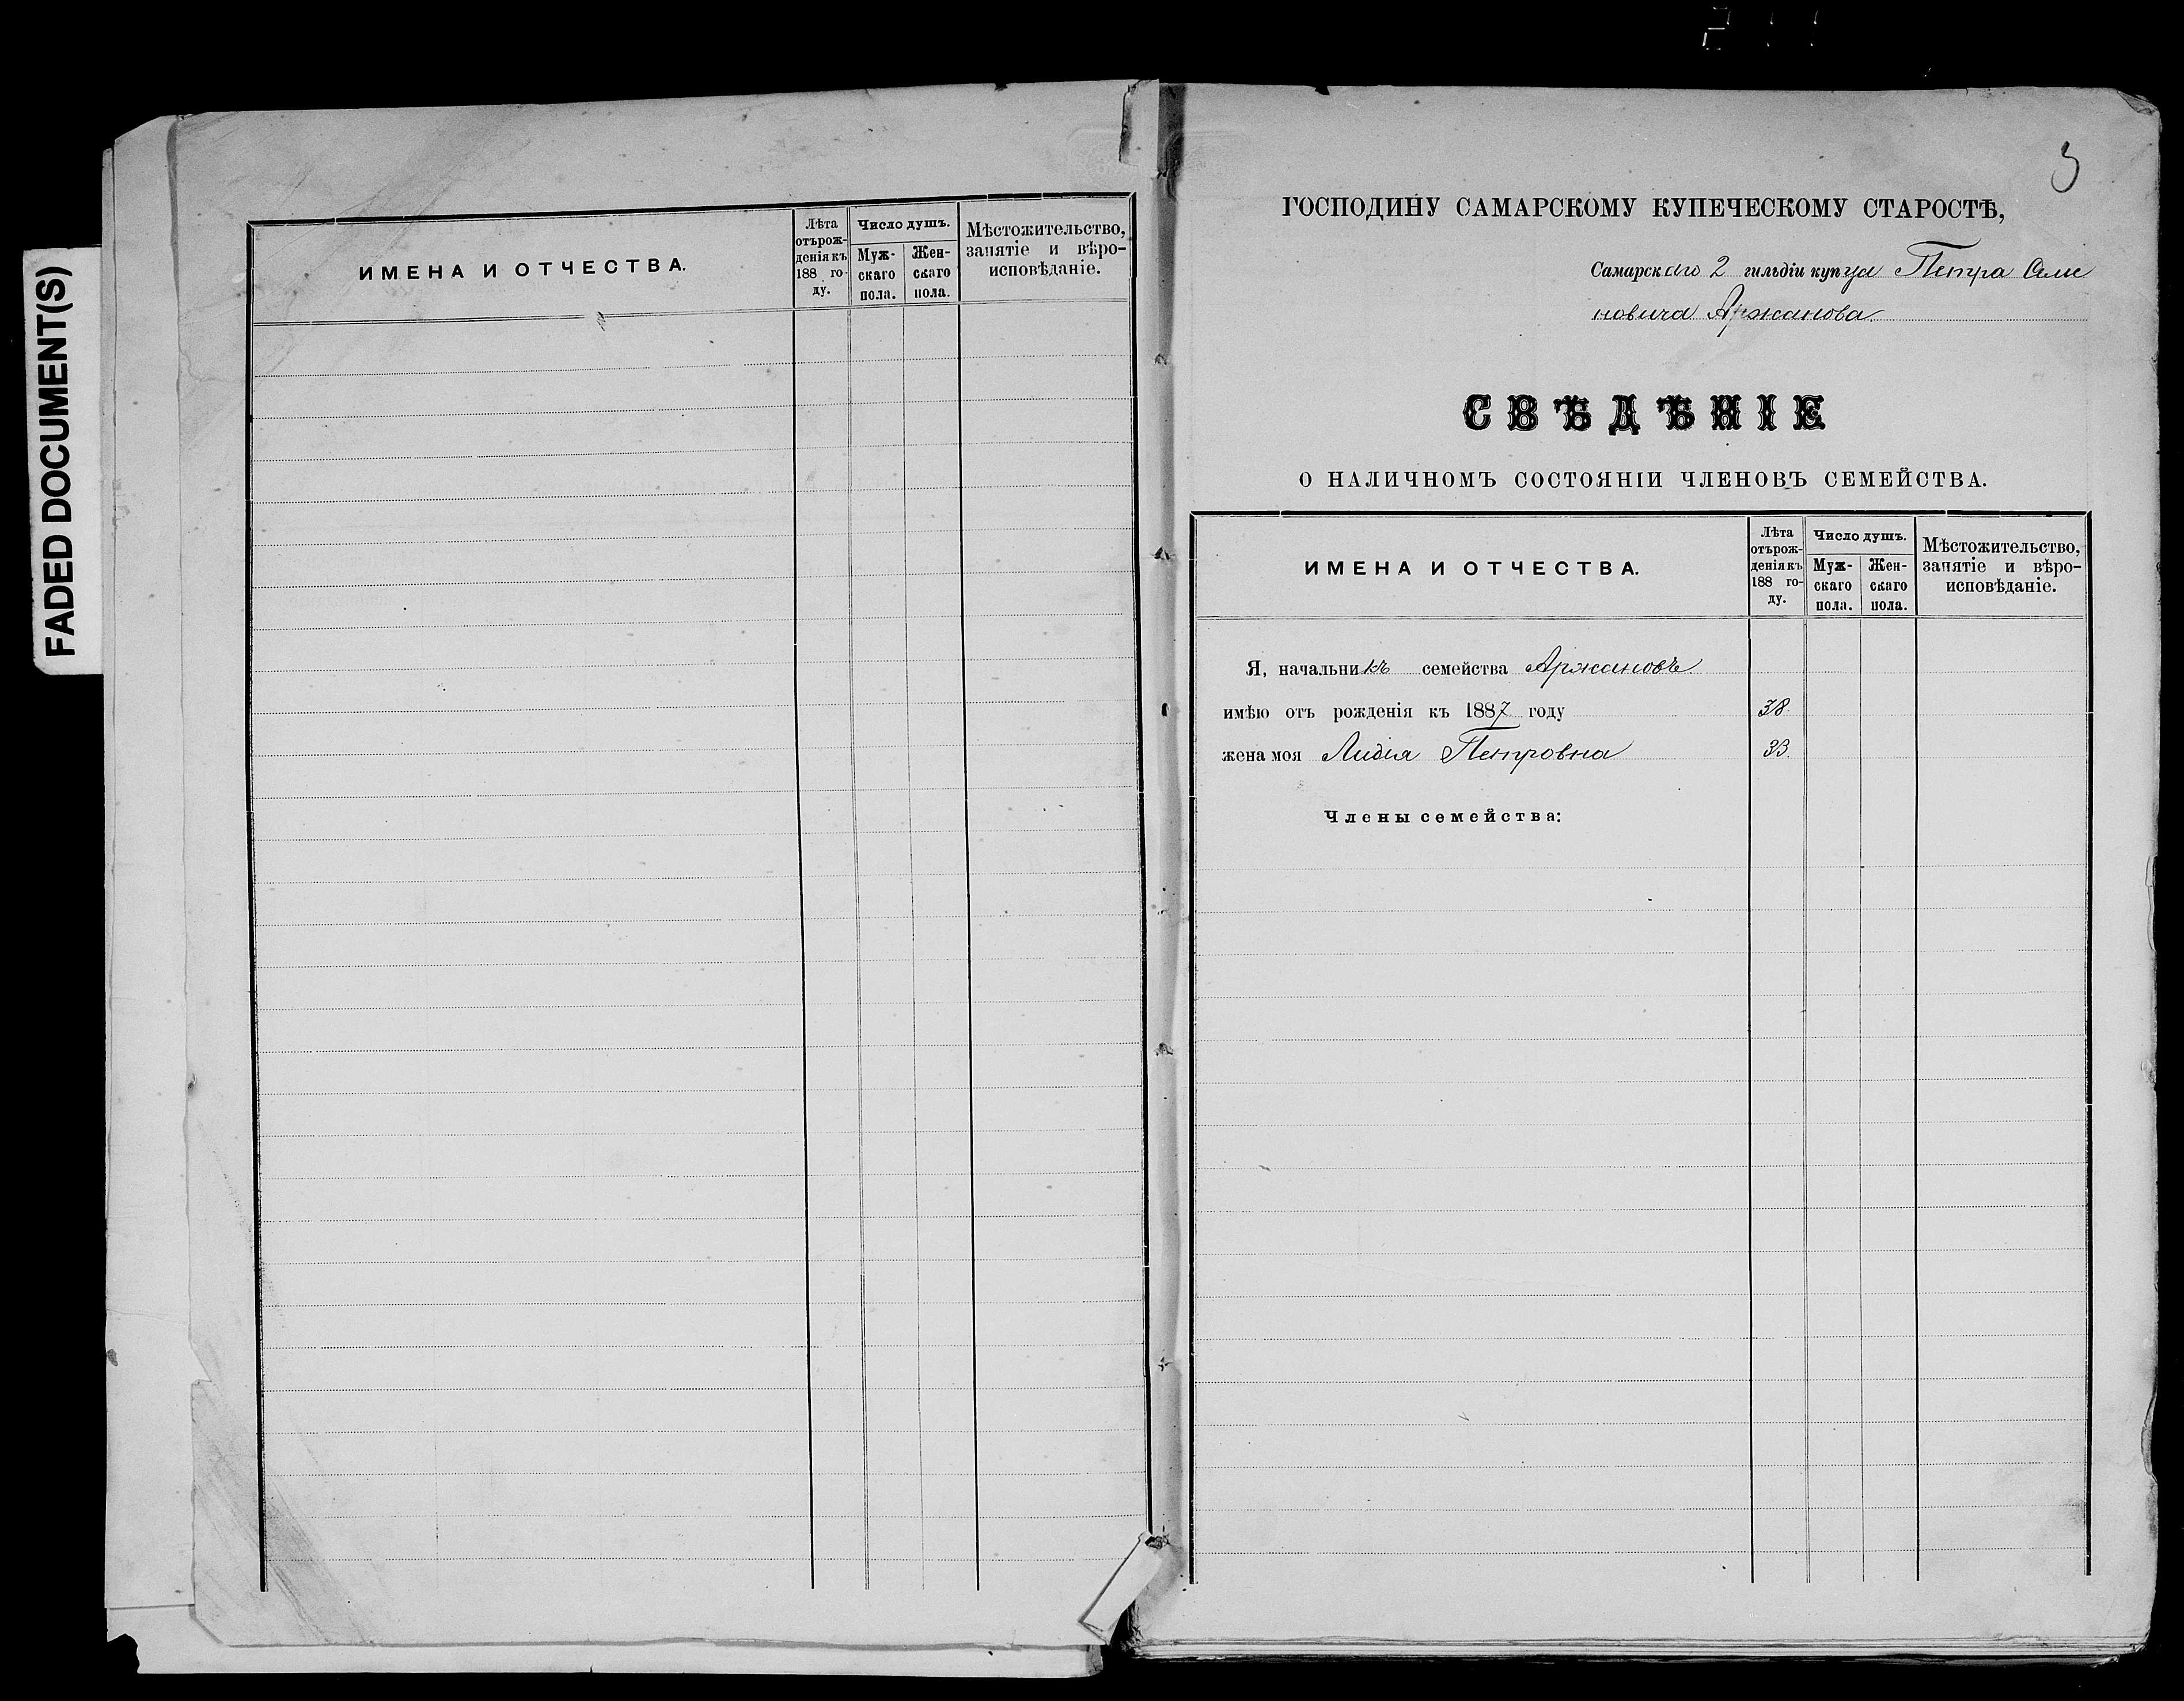 FADED DOCUMENT(S)
ИМЕНА И ОТЧЕСТВА.
Лѣта
отърож-
денія къ
188 го-
ду.
Число душъ.
Муж-
скаго
пола.
Жен-
скаго
пола.
Мѣстожительство,
занятіе и вѣро-
исповѣданіе.
ГОСПОДИНУ САМАРСКОМУ КУПЕЧЕСКОМУ СТАРОСТѢ,
Самарскаго 2 гильдіи купца Петра Семе
новича Аржанова
СВѢДѢНІЕ
О НАЛИЧНОМЪ СОСТОЯНІИ ЧЛЕНОВЪ СЕМЕЙСТВА.
ИМЕНА И ОТЧЕСТВА.
Лѣта
отърож-
денія къ
188 го-
ду.
Число душъ.
Муж-
скаго
пола.
Жен-
скаго
пола.
Мѣстожительство,
занятіе и вѣро-
исповѣданіе.
Я, начальникъ семейства Аржановъ
имѣю отъ рожденія къ 1887 году 38.
жена моя Лидія Петровна 33.
Члены семейства: